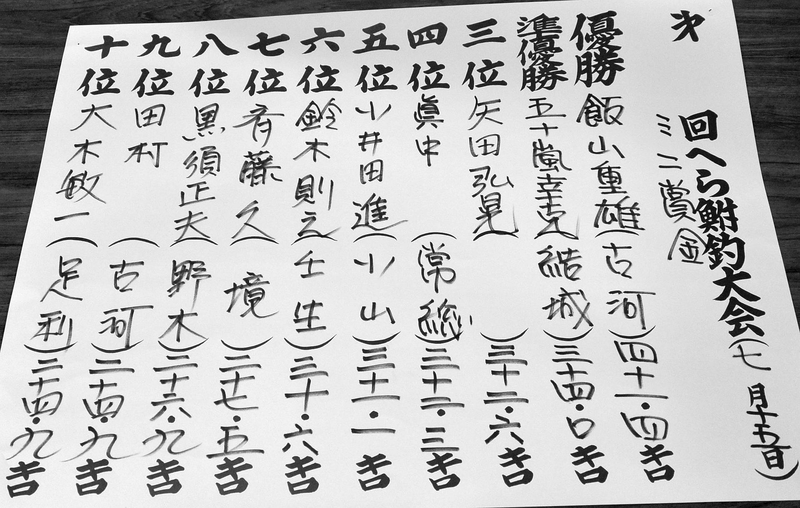 才
回へら鮒釣大会(七月十五日)
ミニ賞金
優勝 飯山重雄(古河)四十一・四キロ
準優勝 五十嵐幸克(結城)三十四・〇キロ
三位 矢田弘晃( )三十二・六キロ
四位 眞中(常総)三十二・三キロ
五位 小井田進(小山)三十一・一キロ
六位 鈴木則之(壬生)三十・六キロ
七位 斉藤久(境)二十七・五キロ
八位 黒須正夫(野木)二十六・九キロ
九位 田村(古河)二十四・九キロ
十位 大木敏一(足利)二十四・九キロ